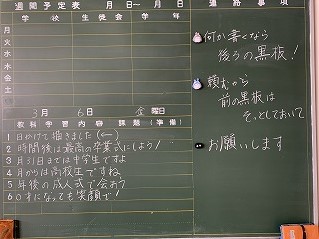 週間予定表 月 日〜 月 日
学校 生徒会 学年
月
火
水
木
金
土
3月 6日 金曜日
教科 学習内容 課題(準備)
1 日かけて描きました(←)
2 時間後は最高の卒業式にしよう!
3 月31日までは中学生ですよ
4 月からは高校生ですね
5 年後の成人式で会おう
6 0才になっても笑顔で!
連絡事項
何か書くなら
後ろの黒板!
頼むから
前の黒板は
そっとしておいて
お願いします